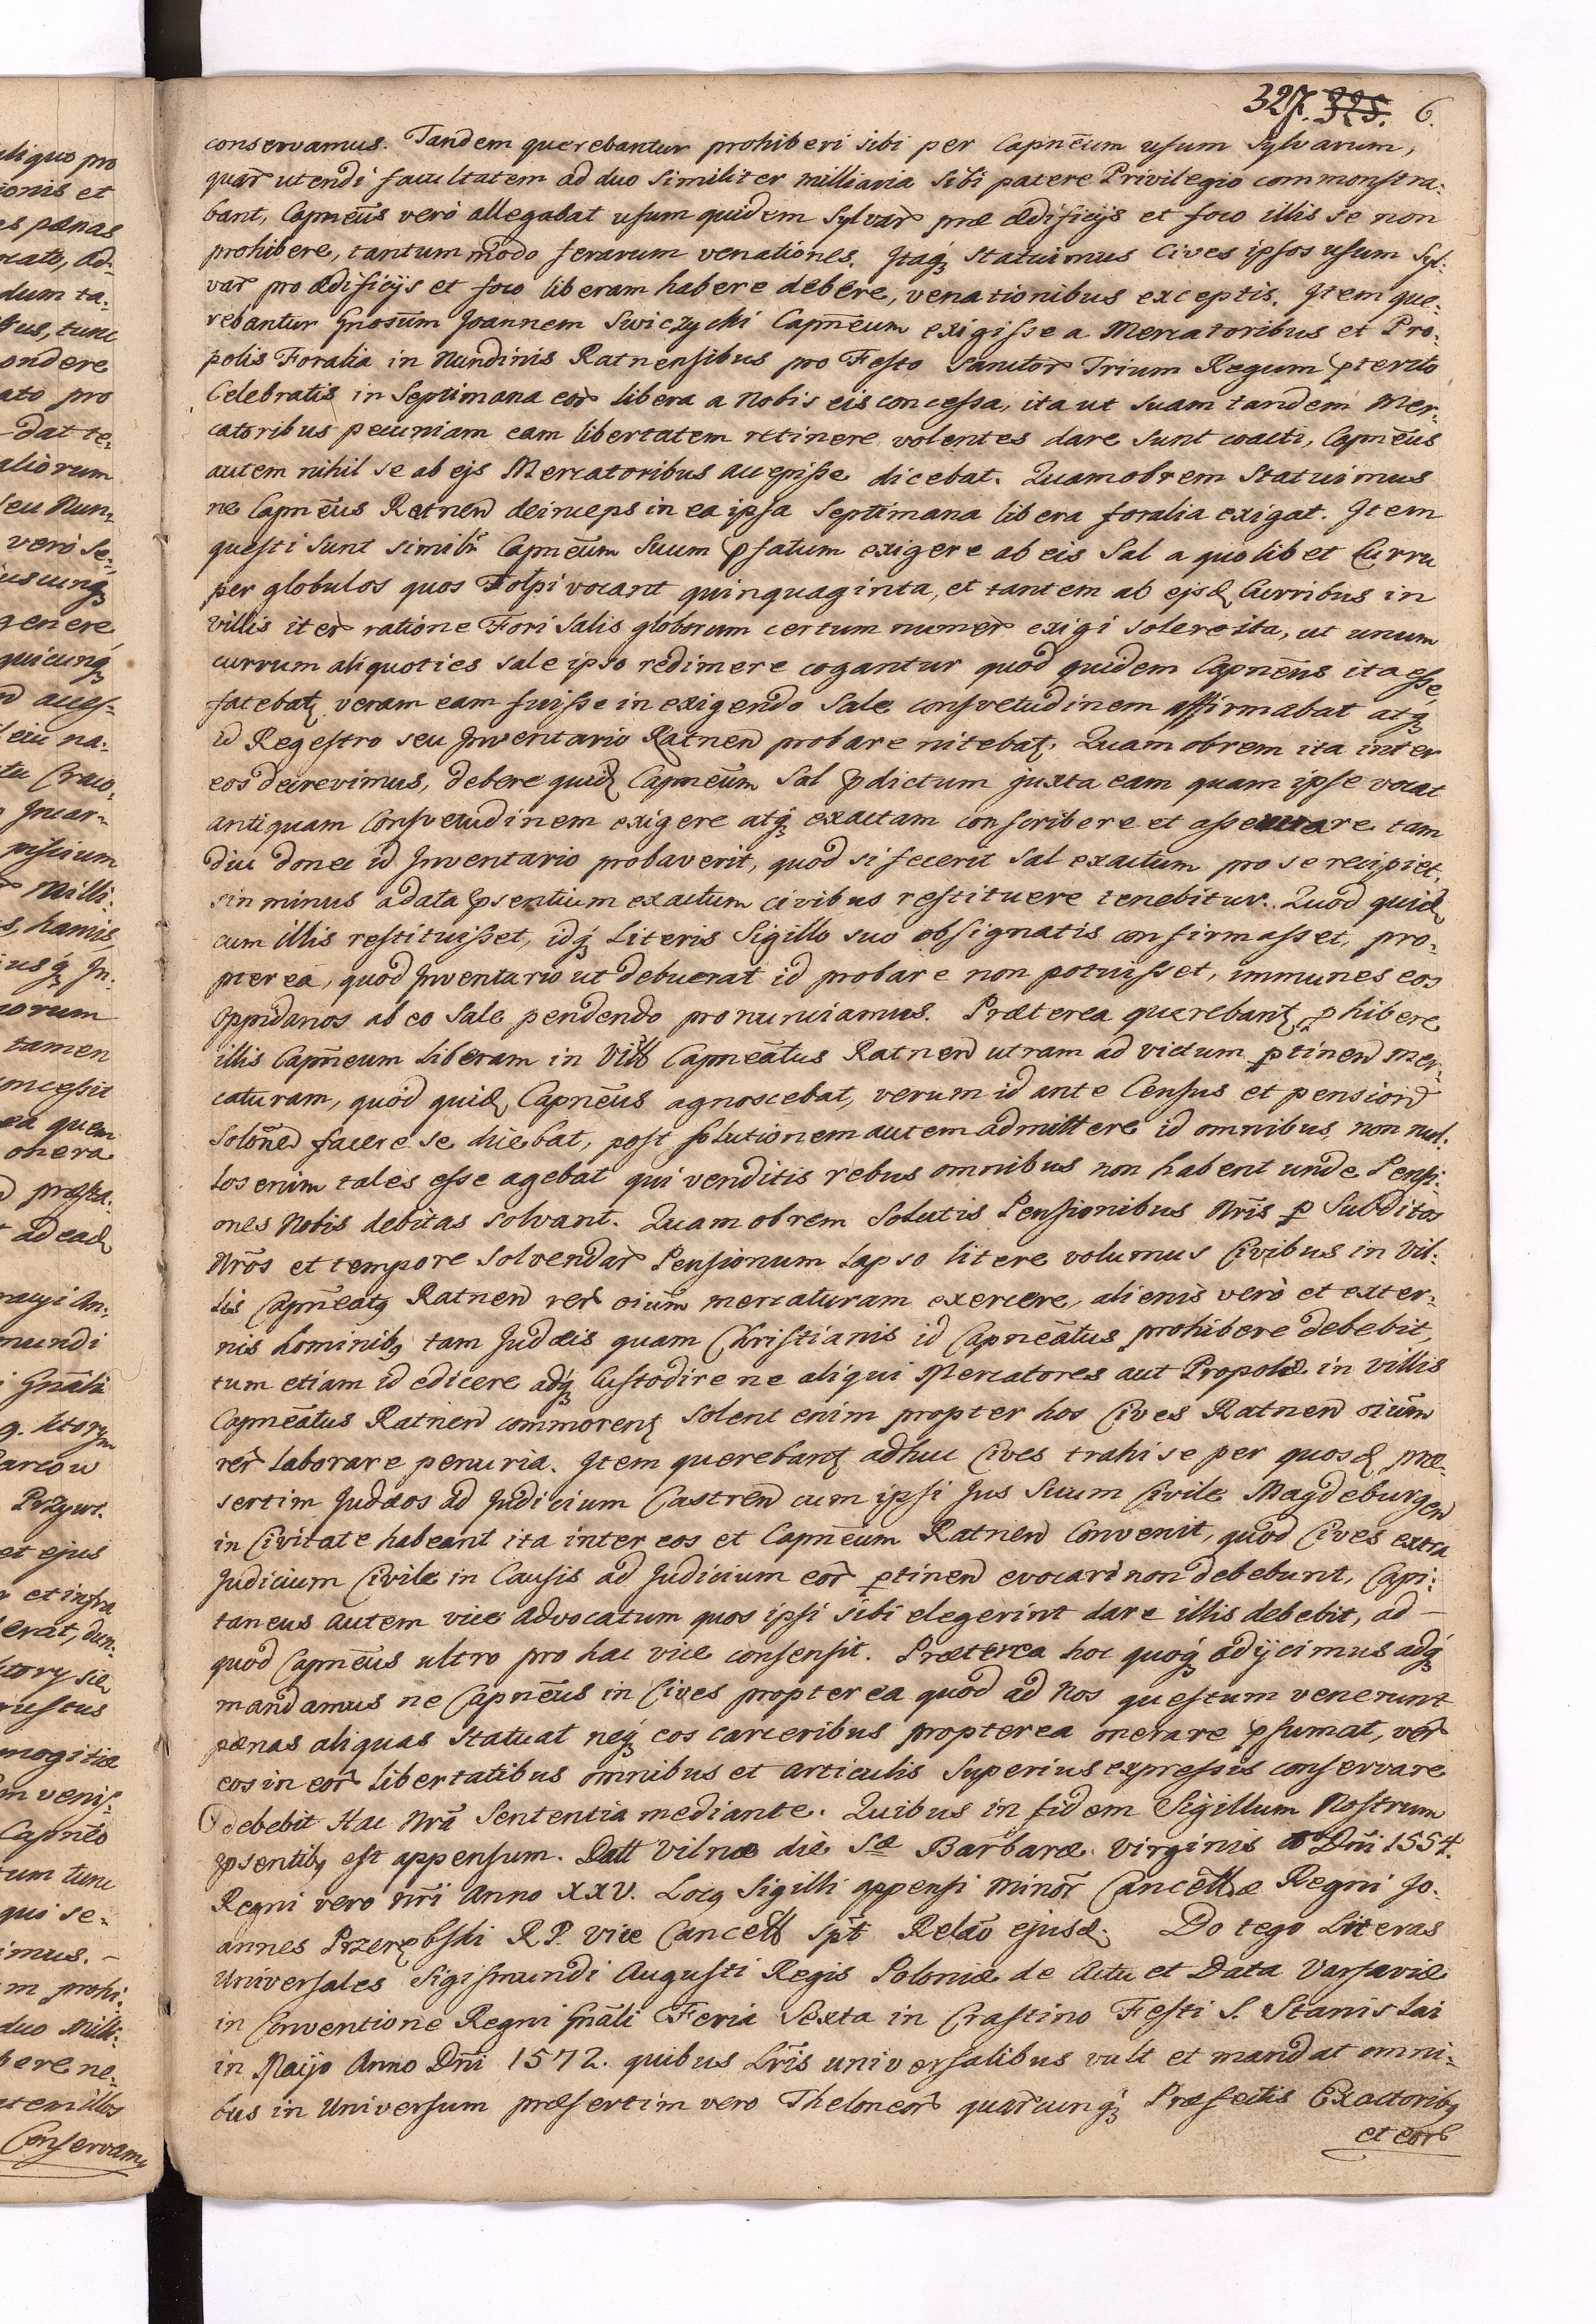 327. 325. 6.
conservamus. Tandem querebantur prohiberi sibi per Capnēum usum Sylvarum,
quar̄ utendi facultatem ad duo similiter milliaria sibi patere Privilegio commonstra:
bant, Capnēus verò allegabat usum quidem Sylvar̄ pro ædificijs et foco illis se non
prohibere, tantum modo ferarum venationes. Itaq́ʒ statuimus Cives ipsos usum Syl:
var̄ pro ædificijs et foco liberam habere debere, venationibus exceptis. Item que:
rebantur Gnosum Joannem Swiczycki Capnēum exigisse a Mercatoribus et Pro:
polis Foralia in Nundinis Ratnensibus pro Festo Sanctor̄ Trium Regum pterito
Celebratis in Septimana eor̄ libera a Nobis eis concessa, ita ut suam tandem Mer:
catoribus pecuniam eam libertatem retinere volentes dare sunt coacti, Capnēus
autem nihil se ab ejs Mercatoribus accepisse dicebat. Quamobrem Statuimus
ne Capnēus Ratnen̄ deinceps in ea ipsa Septimana libera foralia exigat. Item
questi sunt simil̄r Capnēum Suum pfatum exigere ab eis Sal a quolibet Curru
per globulos quos Tołpi vocant quinquaginta, et tantem ab ejsd Curribus in
villis iter̄ ratione Fori Salis globorum certum numer̄ exigi solere ita, ut unum
currum aliquoties sale ipso redimere cogantur quod quidem Capnēus ita esse
fatebat veram eam fuisse in exigendo Sale consvetudinem affirmabat atqʒ
id Regestro seu Inventario Ratnen̄ probare nitebat. Quamobrem ita inter
eos decrevimus, debere quid Capnēum Sal pdictum juxta eam quam ipse vocat
antiquam Consvetudinem exigere atq́ʒ exactam conscribere et asservare tam
diu donec id Inventario probaverit, quod si fecerit Sal exactum pro se recipiet,
sin minus a data psentium exactum civibus restituere tenebitur. Quod quid
cum illis restituisset, idq́ʒ Literis Sigillo suo obsignatis confirmasset, pro:
pterea, quod Inventario ut debuerat id probare non potuisset, immunes eos
Oppidanos ab eo Sale pendendo pronunciamus. Præterea querebant phibere
illis Capnēum Liberam in Vill Capneātus Ratnen̄ utram ad victum ptinen̄ Mer:
caturam, quod quid Capnēus agnoscebat, verum id ante Census et pension̄
Solōnes facere se dicebat, post solutionem autem admittere id omnibus, non nul:
los enim tales esse agebat qui venditis rebus omnibus non habent unde Pensi:
ones Nobis debitas solvant. Quamobrem Solutis Pensionibus Nr̄is p Subditos
Nr̄os et tempore solvendar̄ Pensionum Lapso litere volumus Civibus in Vil:
lis Capneātꝯ Ratnen̄ rer̄ oium̄ mercaturam exercere, alienis verò et exter:
nis hominibꝯ tam Judæis quam Christianis id Capneātus prohibere debebit,
tum etiam id edicere adq́ʒ Custodire ne aliqui Mercatores aut Propolæ in villis
Capneātus Ratnen̄ commorent Solent enim propter hos Cives Ratnen̄ oium̄
rer̄ Laborare penuria. Item querebant adhuc Cives trahi se per quosd præ:
sertim Judæos ad Judicium Castren̄ cum ipsi Jus Suum Civile Magdeburgen̄
in Civitate habeant ita inter eos et Capnēum Ratnen̄ Convenit, quod Cives extra
Judicium Civile in Causis ad Judicium eor̄ ptinen̄ evocari non debebunt, Capi:
taneus autem vice Advocatum quos ipsi sibi elegerint dare illis debebit, ad –
quod Capnēus ultro pro hac vice consensit. Præterea hoc quoq́ʒ adijcimus adq́ʒ
mandamus ne Capnēus in Cives propterea quod ad Nos questum venerunt
pænas aliquas Statuat neq́ʒ eos carceribus propterea onerare psumat, ver̄
eos in eor̄ libertatibus omnibus et articulis Superius expressis conservare
debebit Hac Nrā Sententia mediante. Quibus in fidem Sigillum Nostrum
psentibꝯ est appensum. Datt Vilnæ die Sæ Barbaræ Virginis Dn̄i 1554.
Regni vero nr̄i Anno XXV. Locꝯ Sigilli appensi Minor̄ Cancellæ Regni Jo:
annes Przerębski R. P. Vice Cancell Spt Relāo ejusd. Do tego Literas
Universales Sigismundi Augusti Regis Poloniæ de Actu et Data Varsaviæ
in Conventione Regni Gnāli Feria Sexta in Crastino Festi S. Stanislai
in Maijo Anno Dn̄i 1572. quibus Lr̄is universalibus vult et mandat omni:
bus in Universum præsertim vero Theloneor̄ quar̄cunq́ʒ Præfectis Exactoribꝯ
et eor̄